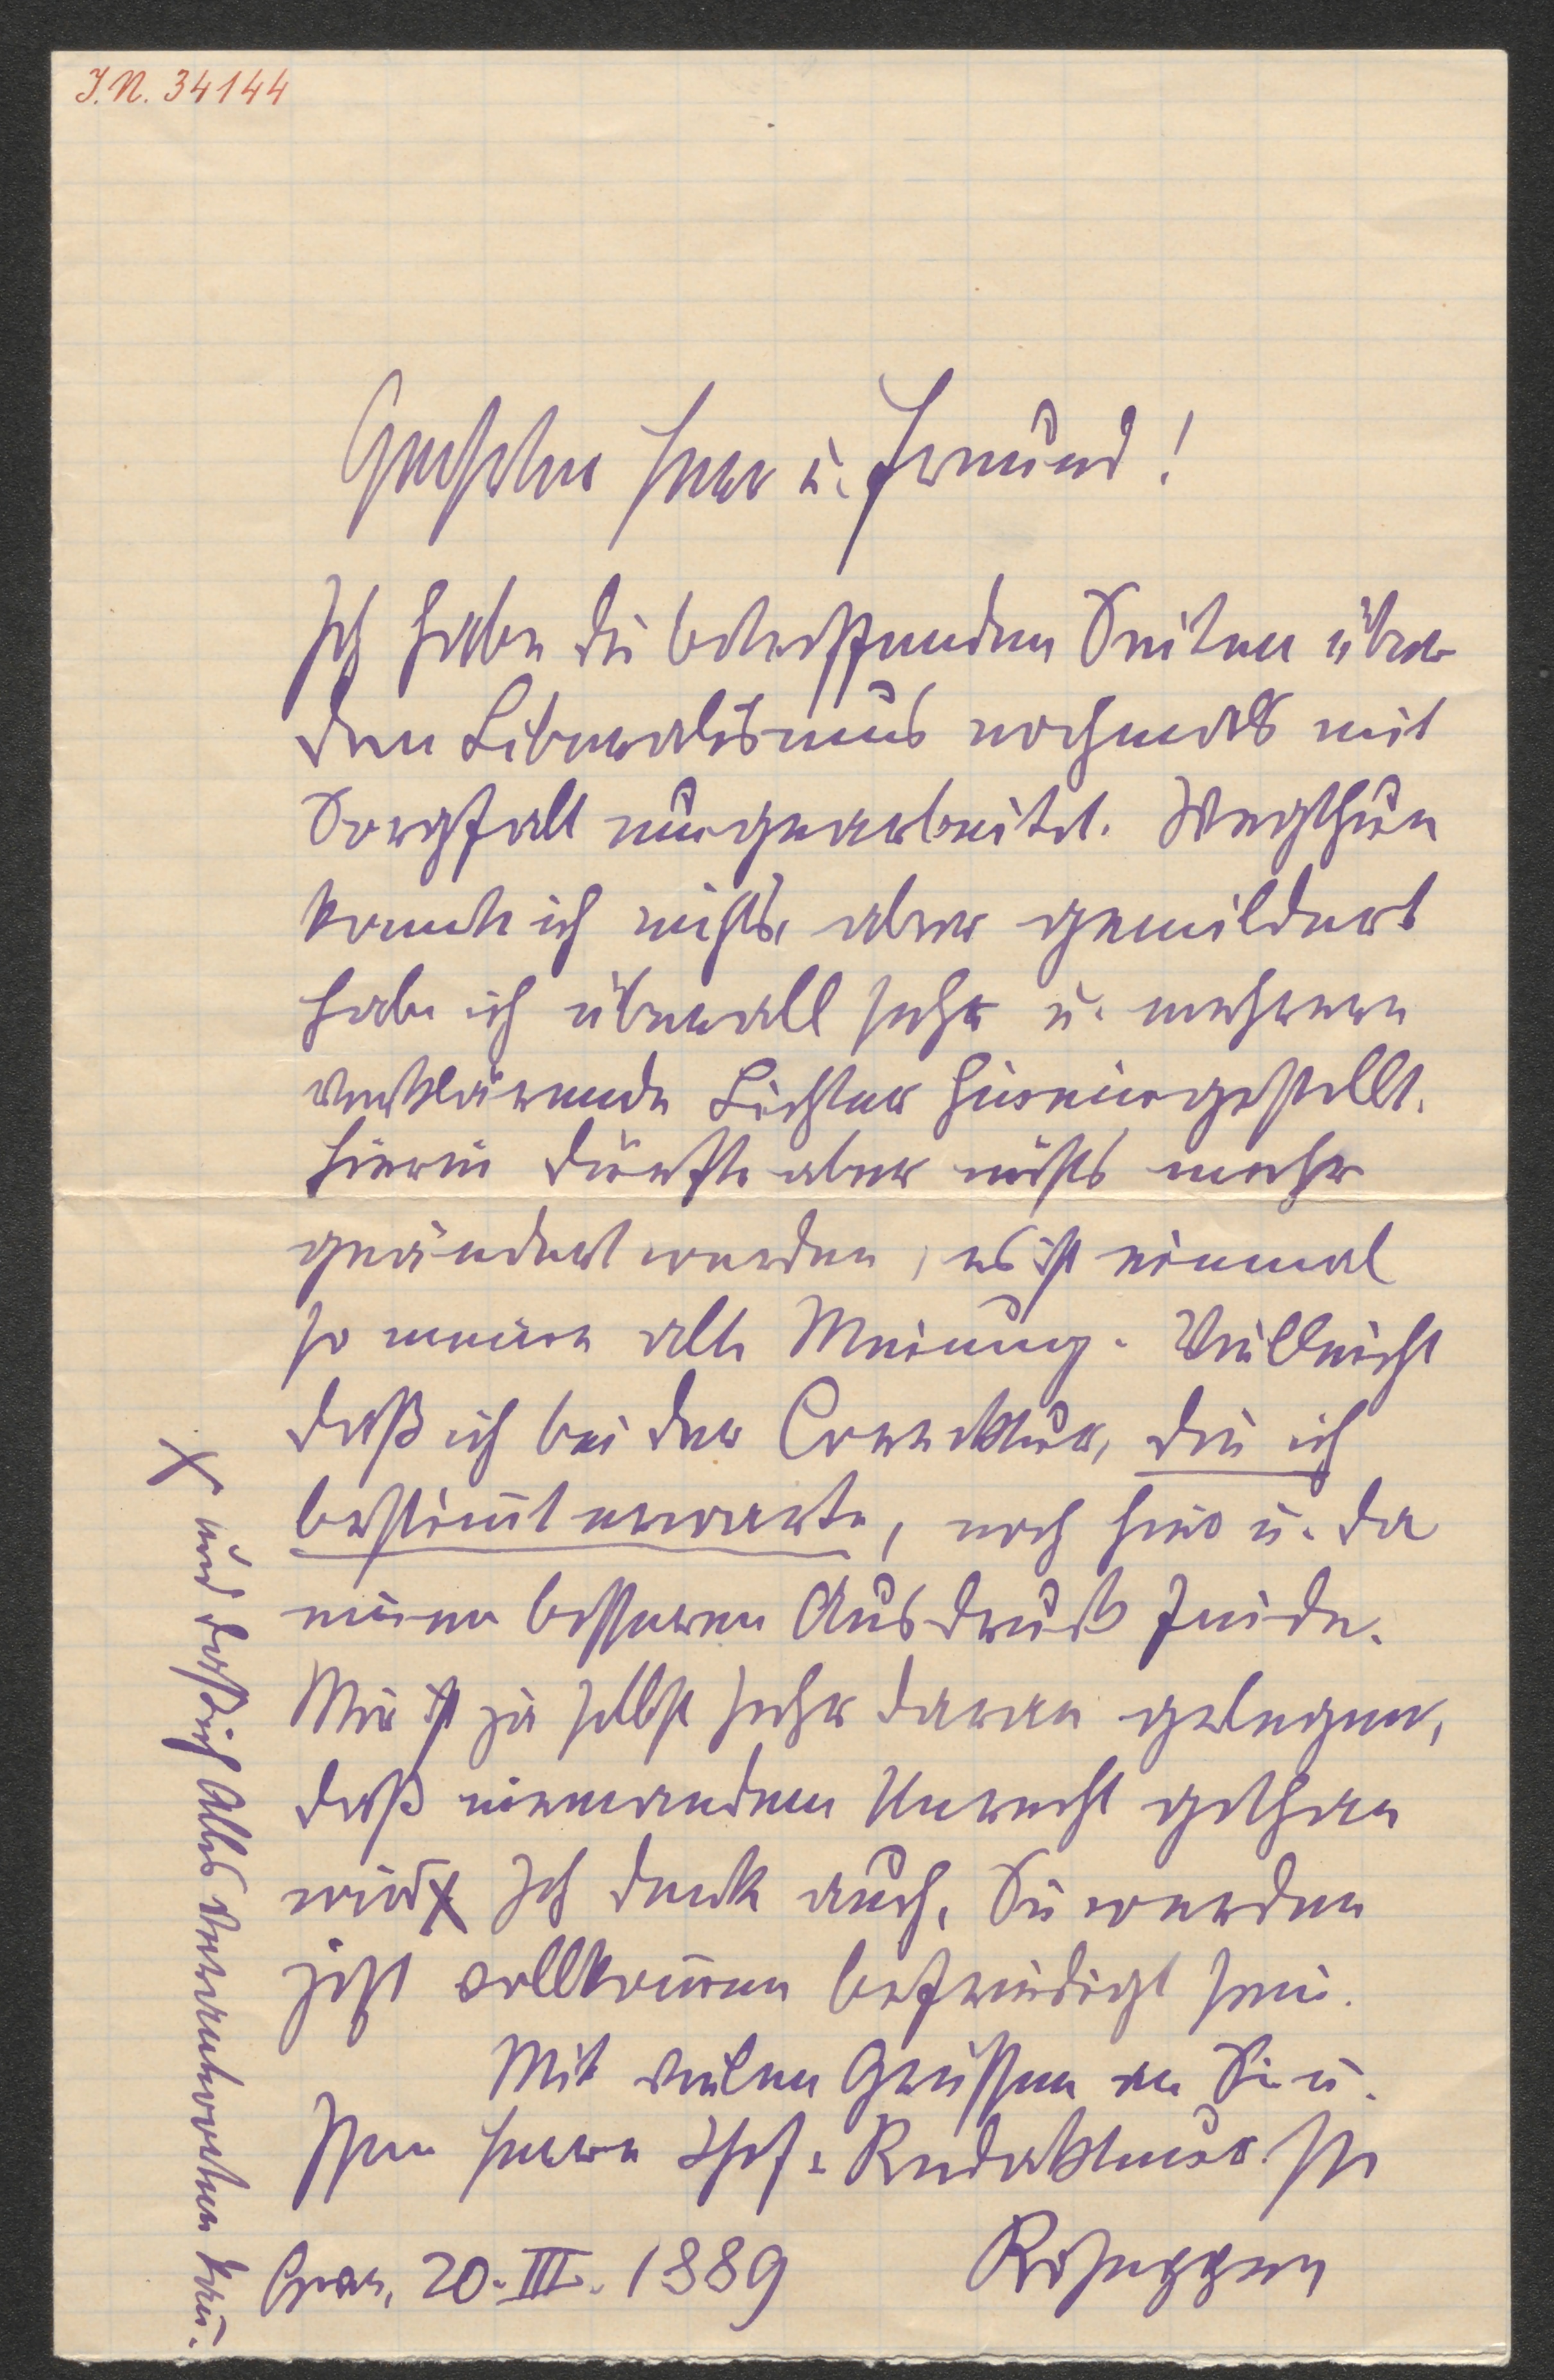 I.N. 34144
Geehrter Herr u. Freund!
Ich habe die betreffenden Seiten über
den Liberalismus nochmals mit
Sorgfalt umgearbeitet. Wegthun
konnte ich nichts, aber gemildert
habe ich überall sehr u. mehrere
verklärende Lichter hineingestellt.
Hierin dürfte aber nichts mehr
geändert werden, es ist einmal
so meine alte Meinung. Vielleicht
daß ich bei der Correcktur, die ich
bestimt erwarte, noch hie u. da
einen besseren Ausdruck finde.
Mir ist ja selbst sehr daran gelegen,
daß niemandem Unrecht gethan
wird X Ich denke auch, Sie werden
jetzt vollkomen befriedigt sein.
Mit vielen Grüssen an Sie u.
Ihren Herrn Chef-Redakteur Ihr
Rosegger
Graz, 20. III. 1889
X und daß ich Alles verantworten kan.